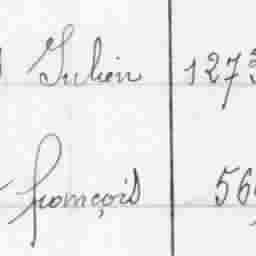 Julien 1273
françois 56